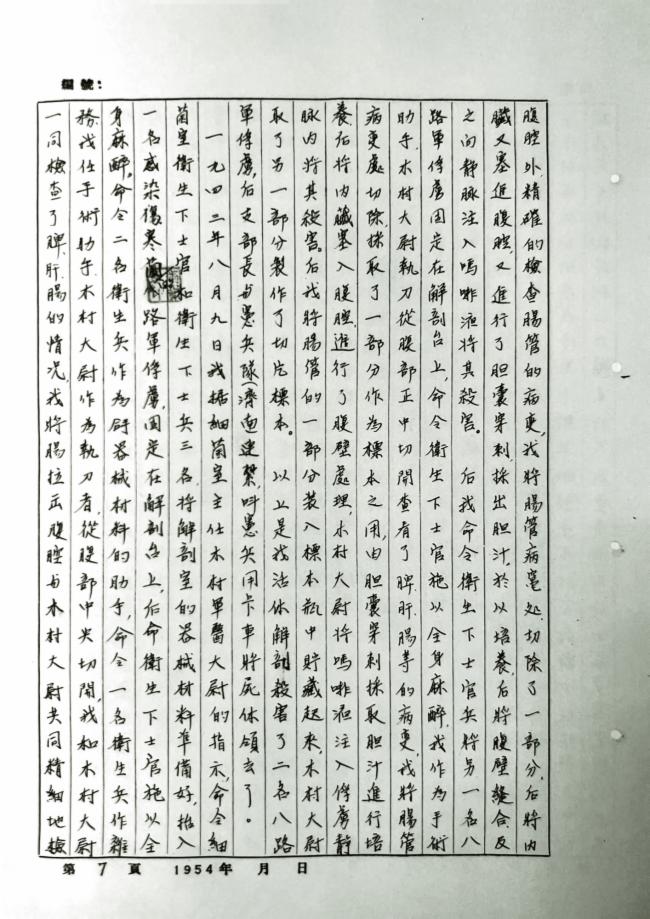 编號：
腹腔外,精確的檢查腸管的病变,我將腸管病竈处,切除了一部分,后將内
臟又塞進腹腔,又進行了胆囊穿刺,採出胆汁,於以培養,后將腹壁縫合,反
之向静脉注入嗎啡液將其殺害。后我命令衛生下士官兵將另一名八
路軍俘虜固定在解剖台上,命令衛生下士官施以全身麻醉,我作為手術
助手,木村大尉執刀從腹部正中切開查看了脾.肝.腸等的病变,我將腸管
病更處切除,採取了一部分作為標本之用,由胆囊穿刺採取胆汁進行培
養,后將内臟塞入腹腔,進行了腹壁处理,木村大尉將嗎啡液注入俘虜静
脉内將其殺害。后我將腸管的一部分装入標本瓶中貯藏起来,木村大尉
取了另一部分製作了切片標本。以上是我活体解剖殺害了二名八路
軍俘虜,后支部長与憲兵隊(濟南連繫,叫憲兵用卡車將屍体領去了。
一九四三年八月九日我据細菌室主任木村軍醫大尉的指示,命令細
菌室衛生下士官和衛生下士兵三名,將解剖室的器械材料準備好,抬入
一名感染傷寒菌路軍俘虜,固定在解剖台上,后命衛生下士官施以全
身麻醉。命令二名衛生兵作為器械材料的助手,命令一名衛生兵作雜
務,我任手術助手.木村大尉作為執刀者,從腹部中央切開,我和木村大尉
一同檢查了脾.肝.腸的情况,我將腸拉出腹腔与木村大尉共同精細地檢
第7頁 1954年 月 日